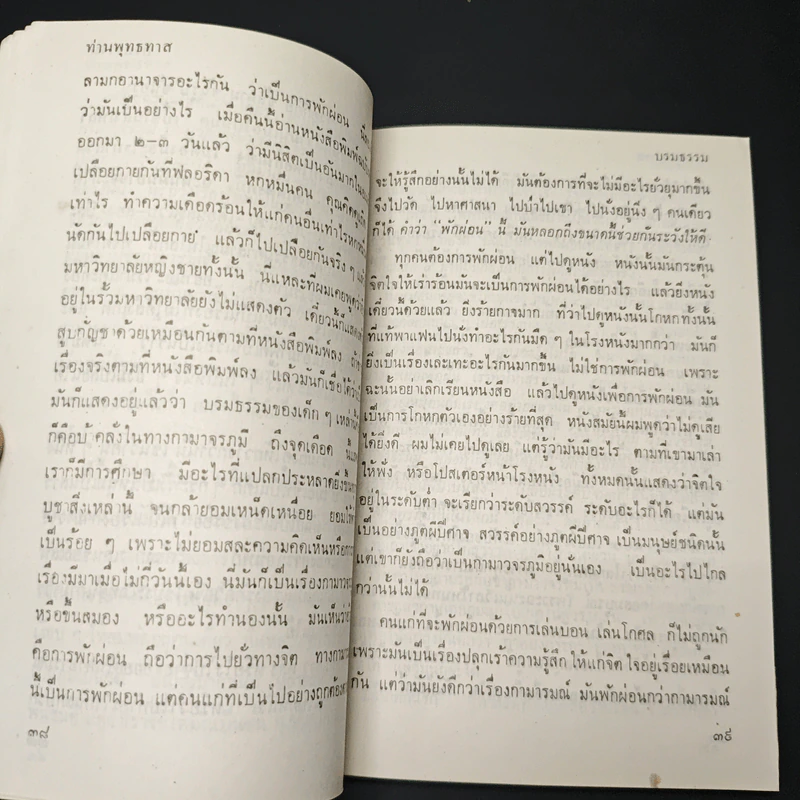 ท่านพุทธทาส
ลามกอานาจารอะไรกัน ว่าเป็นการพักผ่อน
ว่ามันเป็นอย่างไร เมื่อคืนนี้อ่านหนังสือพิมพ์
ออกมา ๒-๓ วันแล้ว ว่ามีนิสิตเป็นอันมาก
เปลือยกายกันที่ฟลอริดา หกหมื่นคน คุณคิด
เท่าไร ทำความเดือดร้อนให้แก่คนอื่นเท่าไร
นัดกันไปเปลือยกาย แล้วก็ไปเปลือยกันจริง ๆ
มหาวิทยาลัยหญิงชายทั้งนั้น นี่แหละที่ผมเคยพูดว่า
อยู่ในรั้วมหาวิทยาลัยยังไม่แสดงตัว เดี๋ยวนี้ก็
สูบกัญชาด้วยเหมือนกันตามที่หนังสือพิมพ์ลง
เรื่องจริงตามที่หนังสือพิมพ์ลง แล้วมันก็เชื่อได้
มันก็แสดงอยู่แล้วว่า บรมธรรมของเด็ก ๆ
ก็คือบ้าคลั่งในทางกามาจรภูมิ ถึงจุดเดือด
เราก็มีการศึกษา มีอะไรที่แปลกประหลาดยิ่งขึ้น
บูชาสิ่งเหล่านี้ จนกล้ายอมเหน็ดเหนื่อย ยอม
เป็นร้อย ๆ เพราะไม่ยอมสละความคิดเห็นหรือ
เรื่องมีมาเมื่อไม่กี่วันนี้เอง นี่มันก็เป็นเรื่องกามาวจร
หรือขึ้นสมอง หรืออะไรทำนองนั้น มันเห็น
คือการพักผ่อน ถือว่าการไปยั่วทางจิต ทาง
นี้เป็นการพักผ่อน แต่คนแก่ที่เป็นไปอย่างถูกต้อง
๓๘
บรมธรรม
จะให้รู้สึกอย่างนั้นไม่ได้ มันต้องการที่จะไม่มีอะไรยั่วยุมากขึ้น
จึงไปวัด ไปหาศาสนา ไปป่าไปเขา ไปนั่งอยู่นิ่ง ๆ คนเดียว
ก็ได้ คำว่า "พักผ่อน" นี้ มันหลอกถึงขนาดนี้ช่วยกันระวังให้ดี.
ทุกคนต้องการพักผ่อน แต่ไปดูหนัง หนังนั้นมันกระตุ้น
จิตใจให้เร่าร้อนมันจะเป็นการพักผ่อนได้อย่างไร แล้วยิ่งหนัง
เดี๋ยวนี้ด้วยแล้ว ยิ่งร้ายกาจมาก ที่ว่าไปดูหนังนั้นโกหกทั้งนั้น
ที่แท้พาแฟนไปนั่งทำอะไรกันมืด ๆ ในโรงหนังมากกว่า มันก็
ยิ่งเป็นเรื่องเละเทะอะไรกันมากขึ้น ไม่ใช่การพักผ่อน เพราะ
ฉะนั้นอย่าเลิกเรียนหนังสือ แล้วไปดูหนังเพื่อการพักผ่อน มัน
เป็นการโกหกตัวเองอย่างร้ายที่สุด หนังสมัยนี้ผมพูดว่าไม่ดูเสีย
ได้ยิ่งดี ผมไม่เคยไปดูเลย แต่รู้ว่ามันมีอะไร ตามที่เขามาเล่า
ให้ฟัง หรือโปสเตอร์หน้าโรงหนัง ทั้งหมดนั้นแสดงว่าจิตใจ
อยู่ในระดับต่ำ จะเรียกว่าระดับสวรรค์ ระดับอะไรก็ได้ แต่มัน
เป็นอย่างภูตผีปีศาจ สวรรค์อย่างภูตผีปีศาจ เป็นมนุษย์ชนิดนั้น
แต่เขาก็ยังถือว่าเป็นกามาวจรภูมิอยู่นั่นเอง เป็นอะไรไปไกล
กว่านั้นไม่ได้
คนแก่ที่จะพักผ่อนด้วยการเล่นบอน เล่นโกศล ก็ไม่ถูกนัก
เพราะมันเป็นเรื่องปลุกเร้าความรู้สึก ให้แก่จิตใจอยู่เรื่อยเหมือน
กัน แต่ว่ามันยังดีกว่าเรื่องกามารมณ์ มันพักผ่อนกว่ากามารมณ์
๓๙